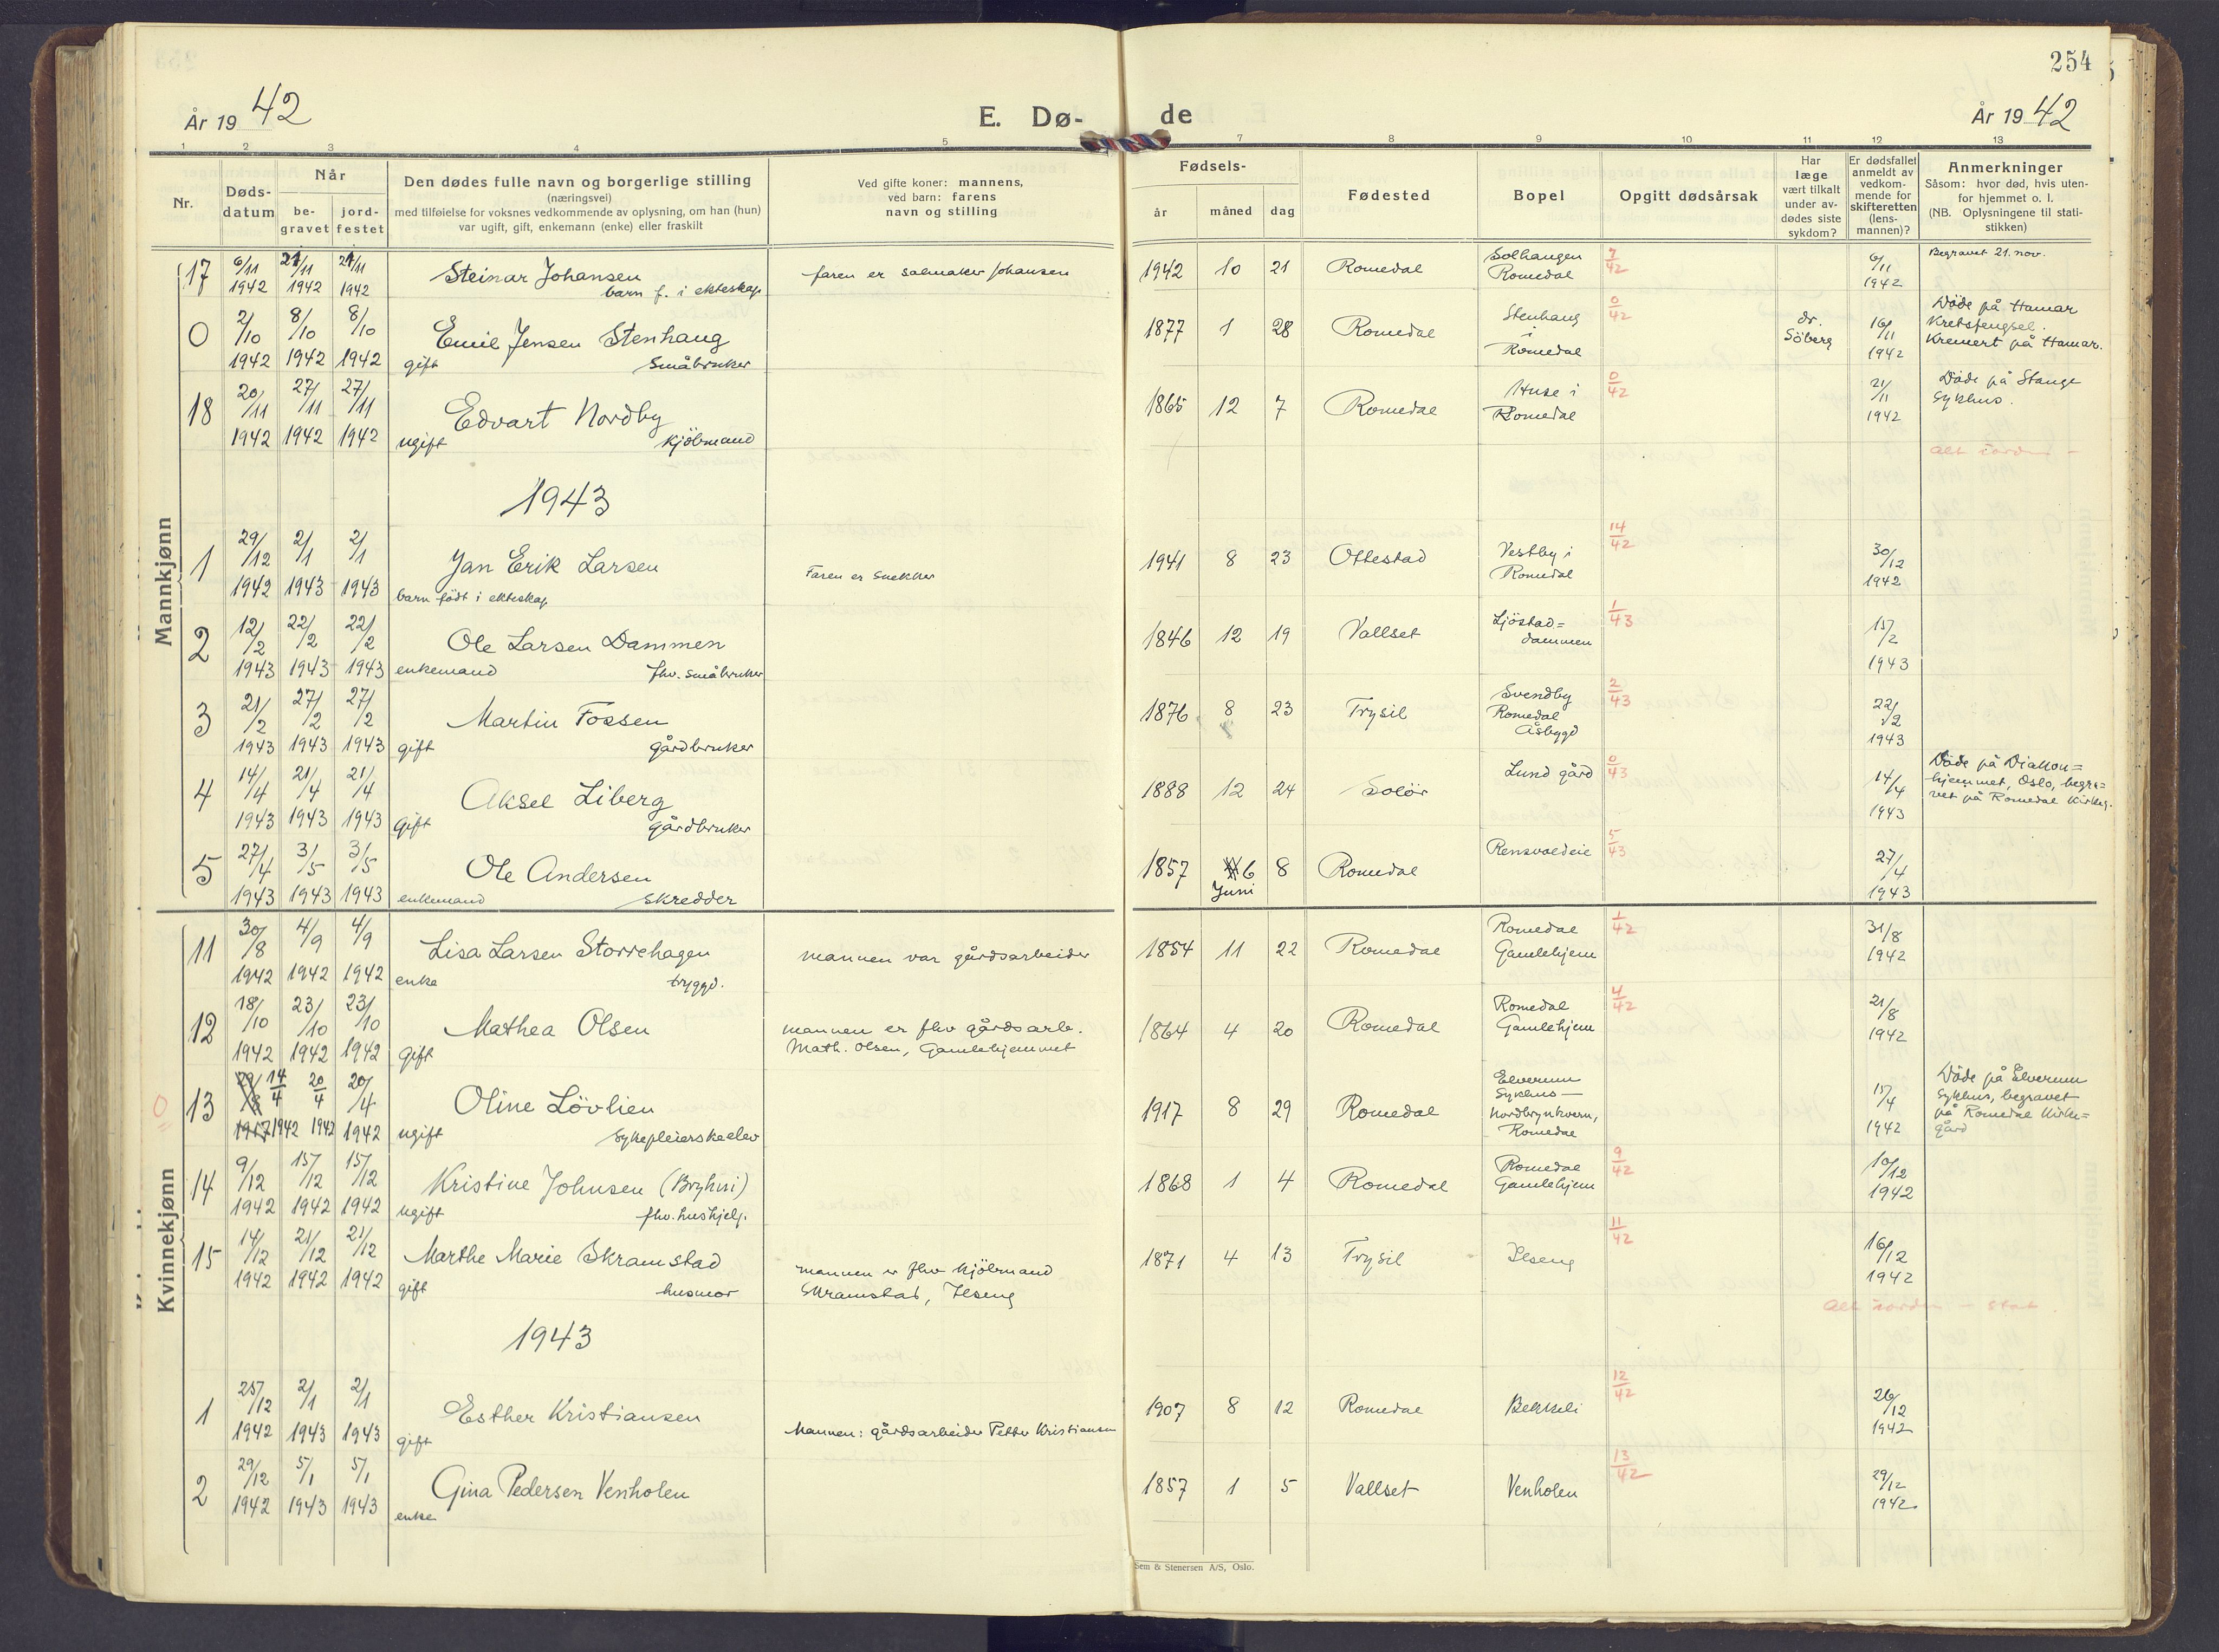 254
År 1942
E. Dø-
de
År 1942
1 2 3 4 5 7 8 9 10 11 12 13
Nr.
Døds-
datum
Når
be-
gravet
jord-
festet
Den dødes fulle navn og borgerlige stilling
(næringsvei)
med tilføielse for voksnes vedkommende av oplysning, om han (hun)
var ugift, gift, enkemann (enke) eller fraskilt
Ved gifte koner: mannens,
ved barn: farens
navn og stilling
Fødsels-
år måned dag
Fødested
Bopel
Opgitt dødsårsak
Har
læge
vært tilkalt
under av-
dødes siste
sykdom?
Er dødsfallet
anmeldt av
vedkom-
mende for
skifteretten
(lens-
mannen)?
Anmerkninger
Såsom: hvor død, hvis uten-
for hjemmet o. l.
(NB. Oplysningene til stati-
stikken)
Mannkjønn
17 6/11 1942 21/11 1942 21/11 1942 Steinar Johansen
barn f. i ekteskap
faren er salmaker Johansen
1942 10 21 Romedal Solhaugen
Romedal
7/42
6/11 1942
Begravet 21. nov.
0 2/10 1942 8/10 1942 8/10 1942 Emil Jensen Stenhaug
gift Småbruker
1877 1 28 Romedal Stenhaug
i
Romedal
0/42
dr.
Söberg
16/11 1942
Döde på Hamar
Kretsfengsel.
Kremert på Hamar.
18 20/11 1942 27/11 1942 27/11 1942 Edvart Nordby
ugift Kjöbmand
1865 12 7 Romedal Huse i
Romedal
0/42
21/11 1942
Döde på Stange
Sykhus.
1943
1 29/12 1942 2/1 1943 2/1 1943 Jan Erik Larsen
barn födt i ekteskap
Faren er Snekker
1941 8 23 Ottestad Vestby i
Romedal
14/42
30/12 1942
2 12/2 1943 22/2 1943 22/2 1943 Ole Larsen Dammen
enkemand fhv. Småbruker
1846 12 19 Vallset Ljöstad=
dammen
1/43
15/2 1943
3 21/2 1943 27/2 1943 27/2 1943 Martin Fossen
gift gårdbruker
1876 8 23 Trysil Svendby
Romedal
Åsbygd
2/43
22/2 1943
4 14/4 1943 21/4 1943 21/4 1943 Aksel Liberg
gift gårdbruker
1888 12 24 Solör Lund gård
0/43
14/4 1943
Döde på Diakon=
hjemmet, Oslo, begra=
vet på Romedal Kirkeg.
5 27/4 1943 3/5 1943 3/5 1943 Ole Andersen
enkemand Skredder
1857 6 8 Romedal
Juni
Rensvoldeie
5/43
27/4 1943
Kvinnekjønn
11 30/8 1942 4/9 1942 4/9 1942 Lisa Larsen Storrehagen
enke trygd.
mannen var gårdsarbeider
1854 11 22 Romedal Romedal
Gamlehjem
1/42
31/8 1942
12 18/10 1942 23/10 1942 23/10 1942 Mathea Olsen
gift
mannen er fhv gårdsarb.
Math. Olsen, Gamlehjemmet
1864 4 20 Romedal Romedal
Gamlehjem
4/42
21/8 1942
0 13 14/4 1942 20/4 1942 20/4 1942 Oline Lövlien
ugift Sykepleierskeelev
1917 8 29 Romedal Elverum
Sykhus —
Nordbrynkvern,
Romedal
15/4 1942
Döde på Elverum
Sykhus, begravet
på Romedal Kirke=
gård
14 9/12 1942 15/12 1942 15/12 1942 Kristine Johnsen (Bryhni)
ugift fhv. hushjelp.
1868 1 4 Romedal Romedal
Gamlehjem
9/42
10/12 1942
15 14/12 1942 21/12 1942 21/12 1942 Marthe Marie Skramstad
gift husmor
mannen er fhv Kjöbmand
Skramstad, Ilseng
1871 4 13 Trysil Ilseng
11/42
16/12 1942
1943
1 25/12 1942 2/1 1943 2/1 1943 Esther Kristiansen
gift
Mannen: gårdsarbeider Petter Kristiansen
1907 8 12 Romedal Bekkeli
12/42
26/12 1942
2 29/12 1942 5/1 1943 5/1 1943 Gina Pedersen Venholen
enke
1857 1 5 Vallset Venholen
13/42
29/12 1942
Sem & Stenersen A/S, Oslo.